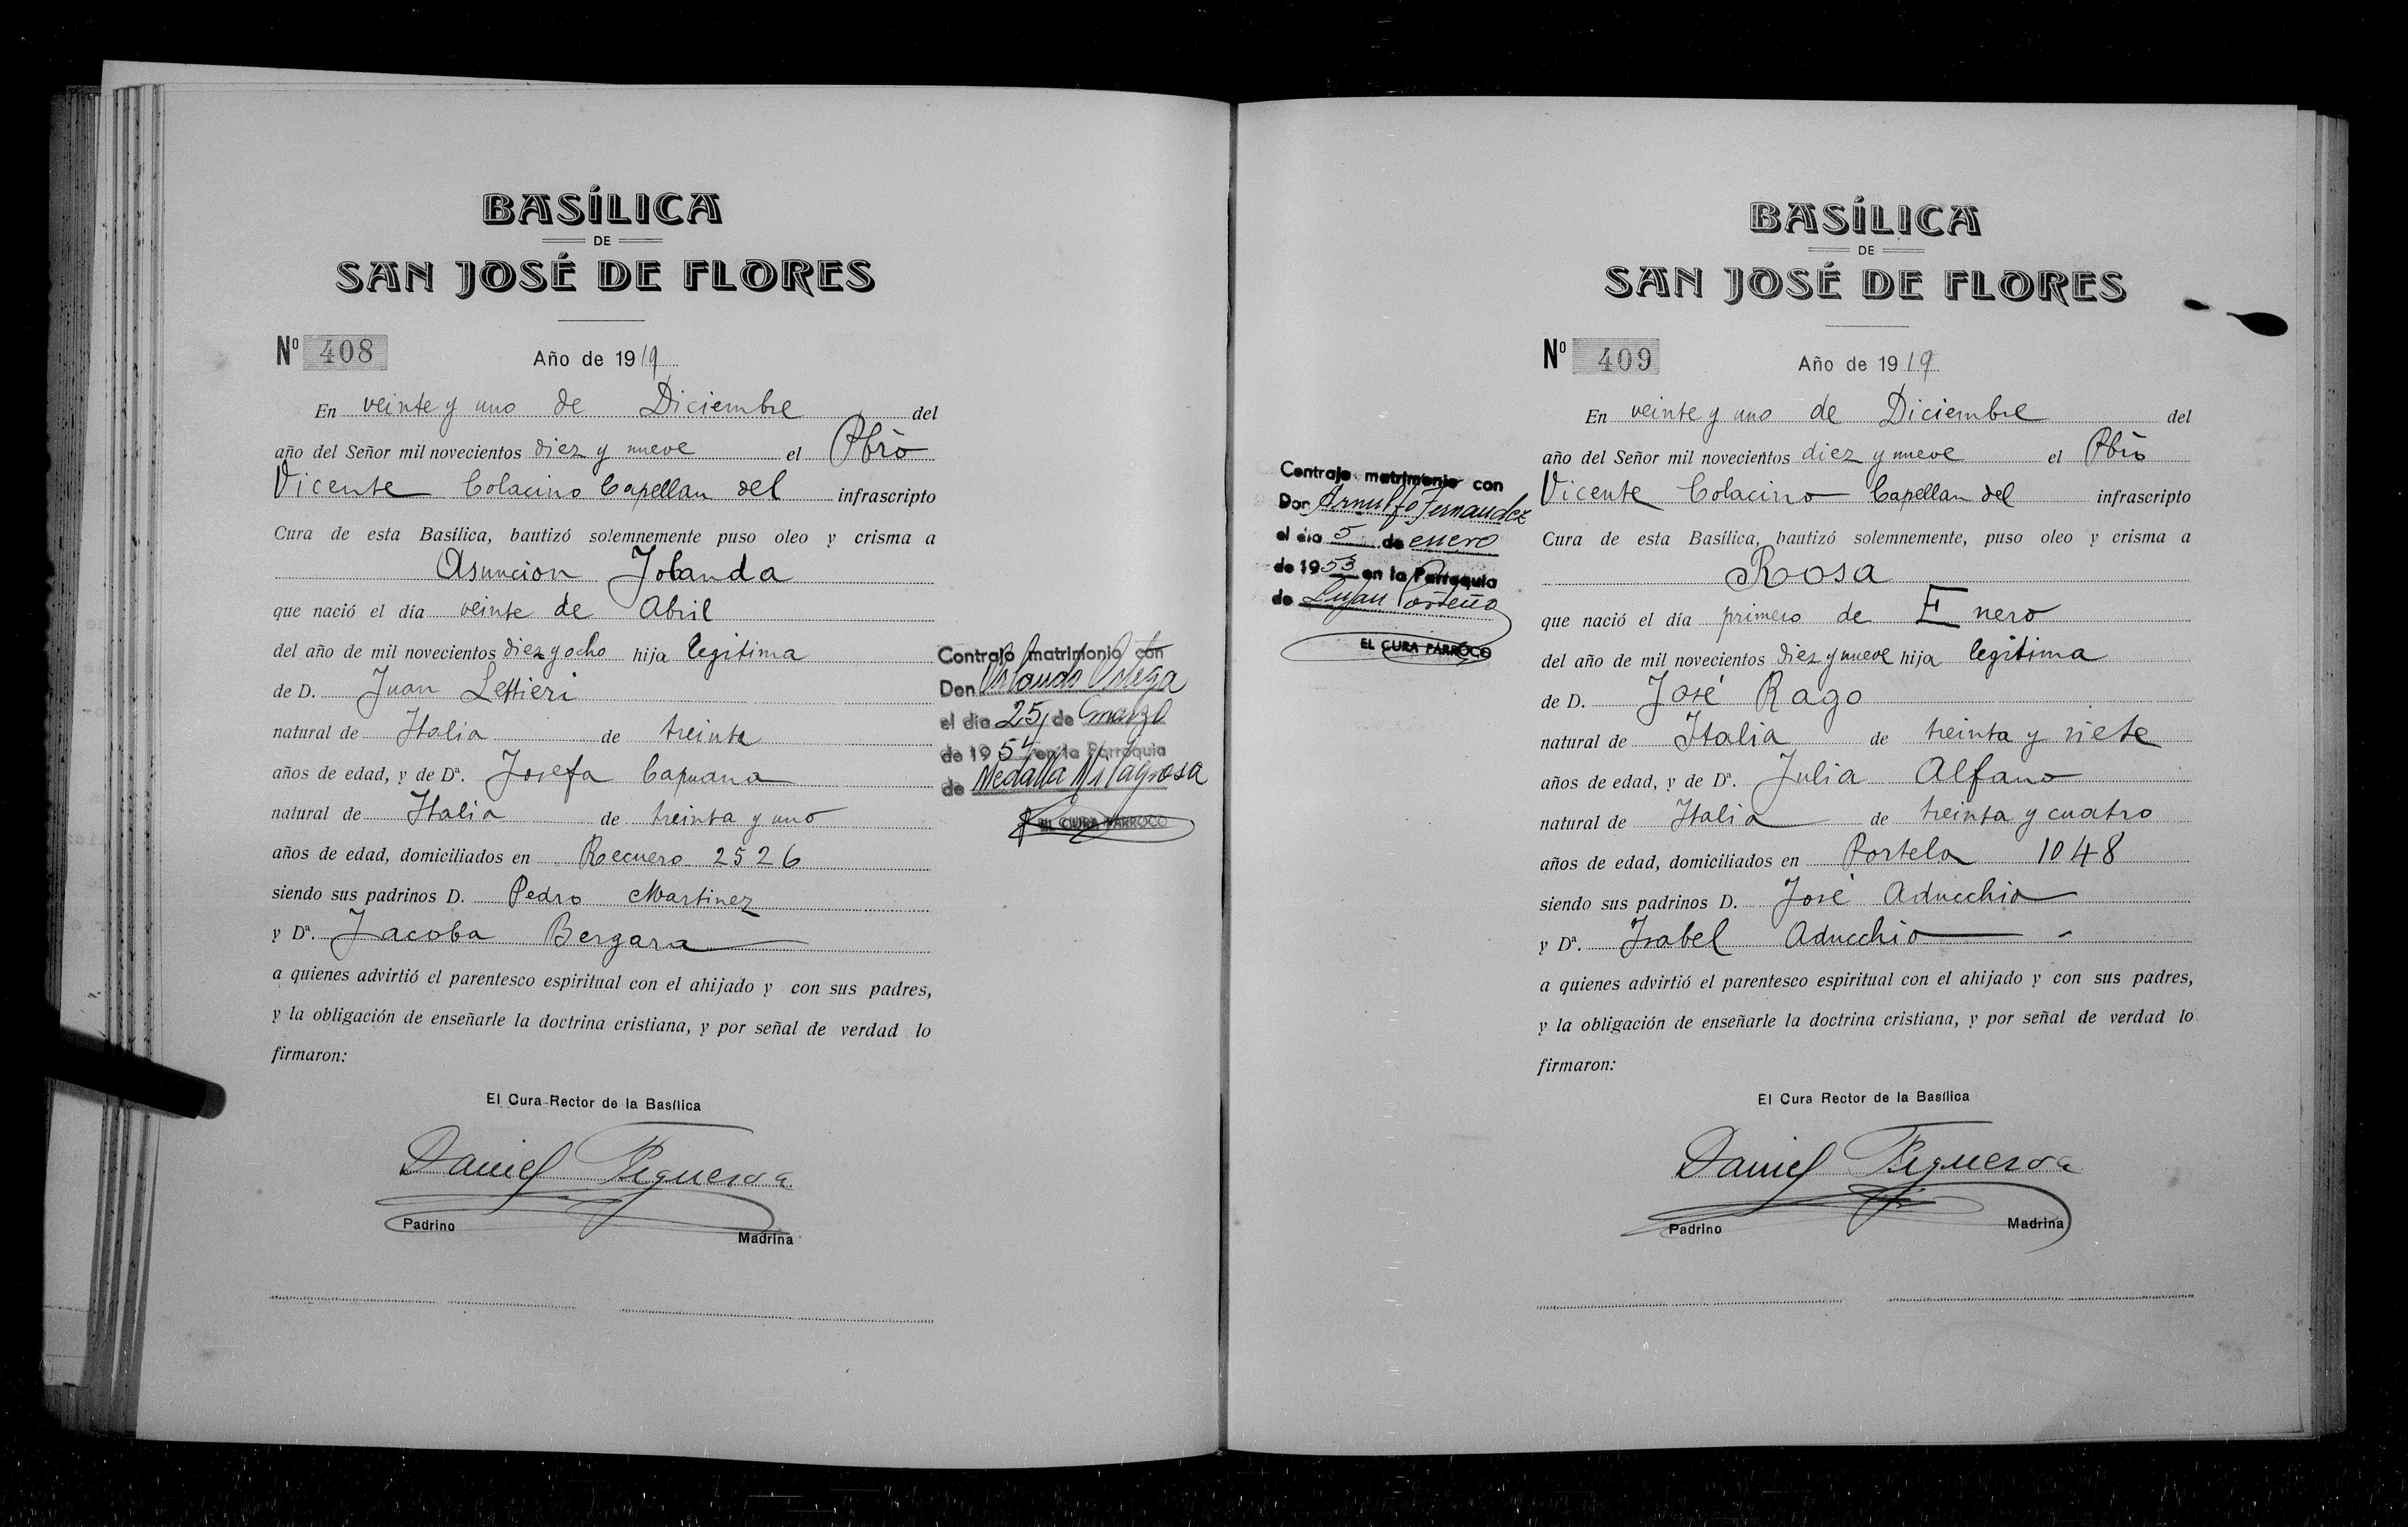 BASÍLICA
DE
SAN JOSÉ DE FLORES
Nº 408 Año de 1919
En veinte y uno de Diciembre del
año del Señor mil novecientos diez y nueve el Pbro
Vicente Colacino Capellan del infrascripto
Cura de esta Basílica, bautizó solemnemente puso oleo y crisma a
Asuncion Jolanda
que nació el día veinte de Abril
del año de mil novecientos diez y ocho hija legitima
de D. Juan Lettieri
natural de Italia de treinta
años de edad, y de Dª. Josefa Capuana
natural de Italia de treinta y uno
años de edad, domiciliados en Recuero 2526
siendo sus padrinos D. Pedro Martinez
y Dª. Jacoba Bergara
a quienes advirtió el parentesco espiritual con el ahijado y con sus padres,
y la obligación de enseñarle la doctrina cristiana, y por señal de verdad lo
firmaron:
El Cura Rector de la Basílica
Daniel Figueroa
Padrino
Madrina
Contrajo matrimonio con
Don Orlando Ortega
el día 25 de marzo
de 1954 en la Parroquia
de Medalla Milagrosa
EL CURA PARROCO
BASÍLICA
DE
SAN JOSÉ DE FLORES
Nº 409 Año de 1919
En veinte y uno de Diciembre del
año del Señor mil novecientos diez y nueve el Pbro
Vicente Colacino Capellan del infrascripto
Cura de esta Basílica, bautizó solemnemente, puso oleo y crisma a
Rosa
que nació el día primero de Enero
del año de mil novecientos diez y nueve hija legitima
de D. José Rago
natural de Italia de treinta y siete
años de edad, y de Dª. Julia Alfano
natural de Italia de treinta y cuatro
años de edad, domiciliados en Portela 1048
siendo sus padrinos D. José Aducchio
y Dª. Isabel Aducchio
a quienes advirtió el parentesco espiritual con el ahijado y con sus padres,
y la obligación de enseñarle la doctrina cristiana, y por señal de verdad lo
firmaron:
El Cura Rector de la Basílica
Daniel Figueroa
Padrino
Madrina
Contrajo matrimonio con
Don Arnulfo Fernandez
el día 5 de enero
de 1953 en la Parroquia
de Lujan Porteño
EL CURA PARROCO